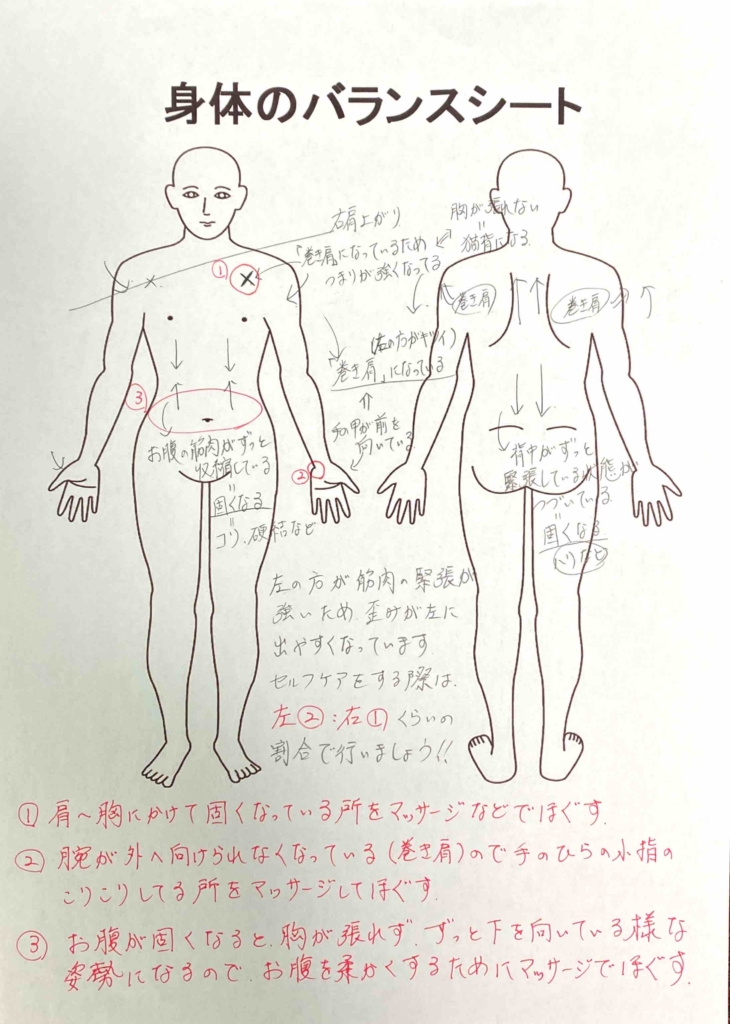 身体のバランスシート
右肩上がり
①
「巻き肩」になっているため
つまりが強くなってる
胸が張れない
猫背になる
巻き肩
巻き肩
(左の方がキツイ)
「巻き肩」になっている
手の甲が前を
向いている
③
お腹の筋肉がずっと
収縮している
固くなる
コリ、硬結など
②
背中がずっと
緊張している状態が
つづいている
固くなる
ハリなど
左の方が筋肉の緊張が
強いため、歪みが左に
出やすくなっています
セルフケアをする際は、
左②:右①くらいの
割合で行いましょう!!
① 肩〜胸にかけて固くなっている所をマッサージなどでほぐす。
② 腕が外へ向けられなくなっている(巻き肩)ので手のひらの小指の
こりこりしてる所をマッサージしてほぐす。
③ お腹が固くなると、胸が張れず、ずっと下を向いている様な
姿勢になるので、お腹を柔かくするためにマッサージでほぐす。